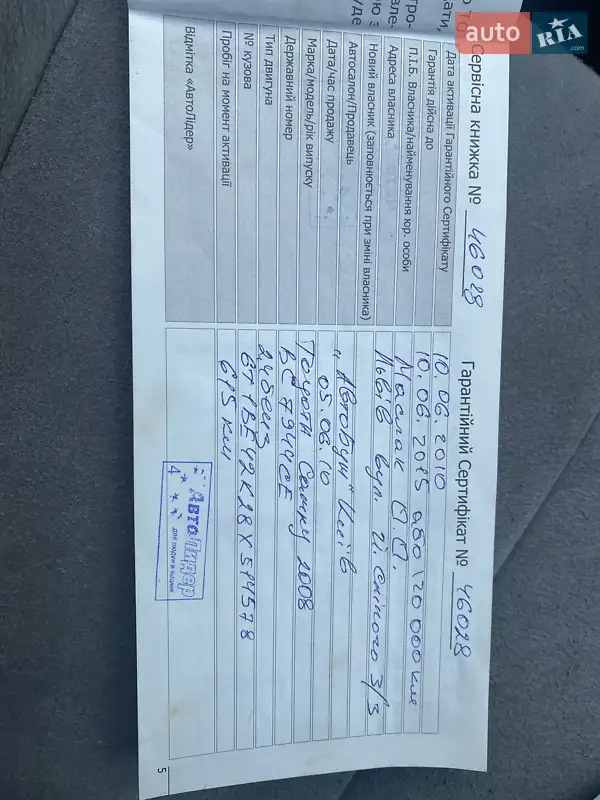 auto RIA .com
Сервісна книжка № 46028 Гарантійний Сертифікат № 46028
Дата активації Гарантійного Сертифікату 10.06.2010
Гарантія дійсна до 10.06.2015 або 120 000 км
П.І.Б. Власника/найменування юр. особи Маслак О.О.
Адреса власника Львів вул. Й. Сліпого 3/3
Новий власник (заповнюється при зміні власника)
Автосалон/Продавець "Автобум" Київ
Дата/час продажу 05.06.10
Марка/модель/рік випуску Toyota Camry 2008
Державний номер ВС 7944СЕ
Тип двигуна 2,4 бенз
№ кузова 6T1BE42K28X514578
Пробіг на момент активації 615 км
Відмітка «АвтоЛідер»
АвтоЛідер
для людей и машин
4
5